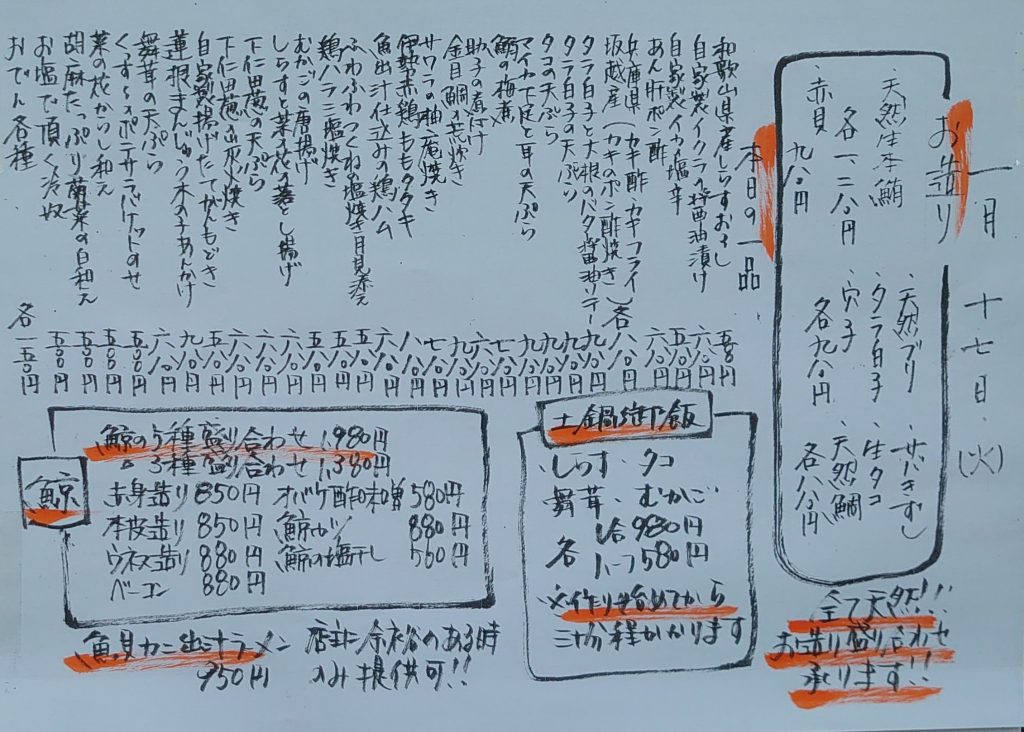 一月十七日・(火)
お造り
・天然ブリ ・サバきずし
・天然生本鮪 ・タラ白子 ・生タコ
各一、二八〇円 ・穴子 ・天然鯛
・赤貝 各九八〇円 各八八〇円
九八〇円
全て天然!!
お造り盛り合わせ
承ります!!
本日の一品
和歌山県産しらすおろし 五八〇円
自家製イクラの醤油漬け 六八〇円
自家製イカの塩辛 五八〇円
あん肝ポン酢 六八〇円
兵庫県(カキ酢・カキフライ)
坂越産(カキのポン酢焼き)各八八〇円
タラ白子と大根のバタ醤油ソテー 九八〇円
タラ白子の天ぷら 九八〇円
タコの天ぷら
マイカゲソと耳の天ぷら
鯛の梅煮
助子の煮付け
金目鯛の荒炊き
サワラの柚庵焼き
伊勢赤鶏ももタタキ
魚出汁仕込みの鶏ハム
ふわふわつくねの塩焼き月見添え
鶏ハラミ塩焼き
むかごの唐揚げ
しらすと菜の花の落とし揚げ
下仁田葱の天ぷら
下仁田葱の炭火焼き
自家製揚げたてがんもどき
蓮根まんじゅう木の子あんかけ
舞茸の天ぷら
くんせいポテサラバケットのせ
菜の花からし和え
胡麻たっぷり菊菜の白和え
お塩で頂く冷奴
おでん各種 各一五〇円
土鍋御飯
・しらす・タコ
舞茸・むかご
各 1合980円
ハーフ580円
※作り始めてから
三十分程かかります
鯨
鯨の5種盛り合わせ 1,980円
〃 3種盛り合わせ 1,380円
赤身造り 850円 オバケ酢味噌 580円
本皮造り 850円 鯨カツ 880円
ウネス造り 880円 鯨の塩干し 560円
ベーコン 880円
魚貝カニ出汁ラーメン 店主に余裕のある時
950円 のみ提供可!!